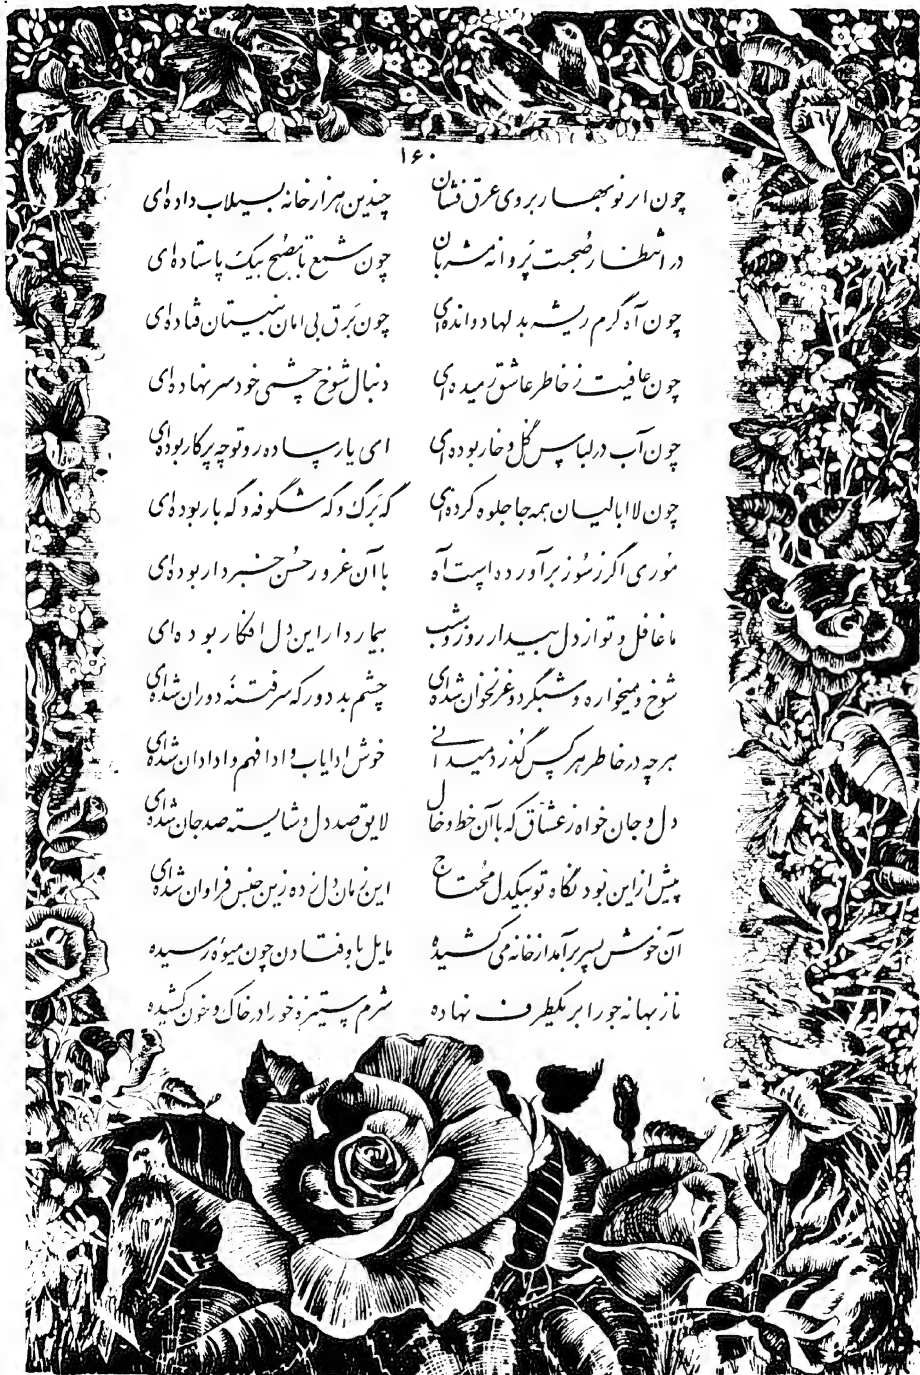 ۱۶۰
چون ابر نوبهار بروی عرق فشان چندین هزار خانه بسیلاب داده‌ای
در انتظار صحبت پروانه مشربان چون شمع تا بصبح بیک پا ستاده‌ای
چون آه گرم ریشه بدلها دوانده‌ای چون برق بی امان بنیستان فتاده‌ای
چون عافیت ز خاطر عاشق رمیده‌ای دنبال شوخ چشمی خود سر نهاده‌ای
چون آب در لباس گل و خار بوده‌ای ای یار ساده رو تو چه پرکار بوده‌ای
چون لاابالیان همه جا جلوه کرده‌ای گه برگ و گه شگوفه و گه بار بوده‌ای
موری اگر ز سوز برآورده است آه با آن غرور حسن خبردار بوده‌ای
ما غافل و تو از دل بیدار روز و شب بیماردار این دل افکار بوده‌ای
شوخ و میخواره و شبگرد و غزلخوان شده‌ای چشم بد دور که سرفتنهٔ دوران شده‌ای
هرچه در خاطر هرکس گذرد میدانی خوش ادایاب و ادافهم و ادادان شده‌ای
دل و جان خواه ز عشاق که با آن خط و خال لایق صد دل و شایسته صد جان شده‌ای
پیش ازاین بود نگاه تو بیکدل محتاج این زمان دل زده زین جنس فراوان شده‌ای
آن خوش پسر برآمد از خانه می کشیده مایل باوفتادن چون میوه رسیده
ناز بهانه جو را بر یکطرف نهاده شرم ستیزه خو را در خاک و خون کشیده